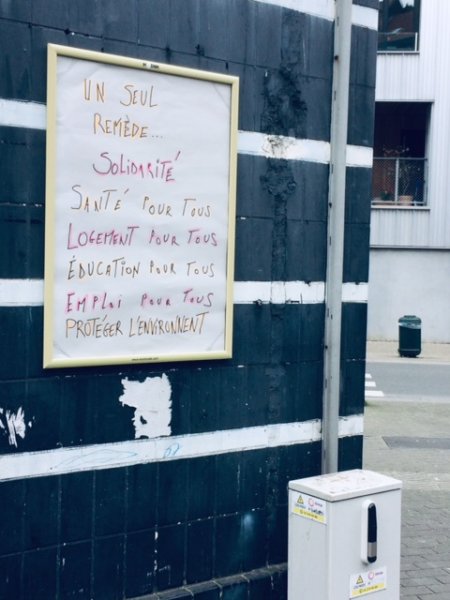 UN SEUL
REMÈDE...
SOLIDARITÉ
SANTÉ POUR TOUS
LOGEMENT POUR TOUS
ÉDUCATION POUR TOUS
EMPLOI POUR TOUS
PROTÉGER L'ENVIRONNENT